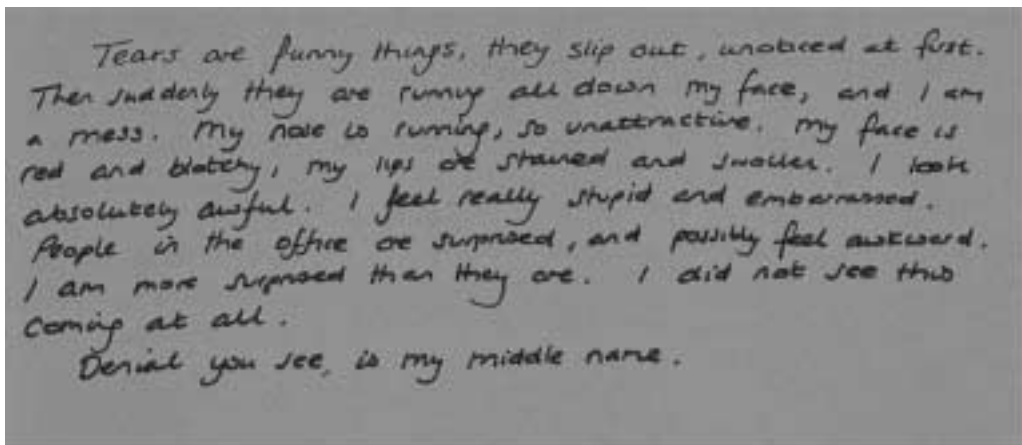 Tears are funny things, they slip out, unnoticed at first.
Then suddenly they are running all down my face, and I am
a mess. My nose is running, so unattractive. My face is
red and blotchy, my lips are stained and swollen. I look
absolutely awful. I feel really stupid and embarrassed.
People in the office are surprised, and possibly feel awkward.
I am more surprised than they are. I did not see this
coming at all.
Denial you see, is my middle name.